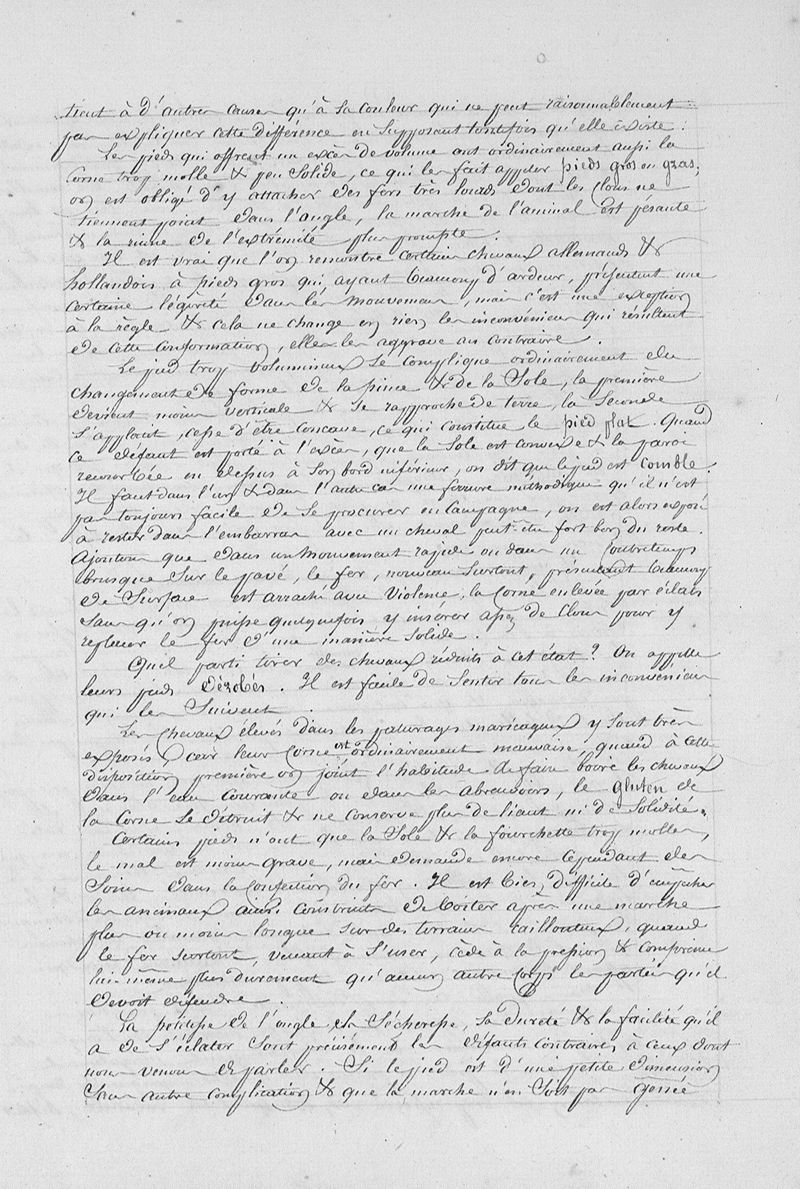 tient à d'autres causes qu'à sa couleur qui ne peut raisonnablement
pas expliquer cette différence en supposant toutefois qu'elle existe.
Les pieds qui offrent un excès de volume ont ordinairement aussi la
Corne trop molle & peu solide, ce qui les fait appeler pieds gros en gras;
on est obligé d'y attacher des fers très lourds dont les clous ne
tiennent point dans l'angle, la marche de l'animal est pésante
& la ruine de l'extrémité plus prompte.
Il est vrai que l'on rencontre certains chevaux allemands &
hollandois à pieds gros qui, ayant beaucoup d'ardeur, présentent une
certaine légèreté dans les mouvemens, mais c'est une exception
à la règle & cela ne change en rien les inconvéniens qui résultent
de cette conformation, elle les aggrave au contraire.
Le pied trop volumineux se complique ordinairement du
changement de forme de la pince & de la Sole, la première
devient moins verticale & se rapproche de terre, la seconde
s'applatit, cesse d'être concave, ce qui constitue le pied plat. Quand
ce défaut est porté à l'excès, que la Sole est convexe & la paroi
recourbée en dessus à son bord inférieur, on dit que le pied est comble.
Il faut dans l'un & dans l'autre cas une ferrure méthodique qu'il n'est
pas toujours facile de se procurer en campagne, on est alors exposé
à rester dans l'embarras avec un cheval peut-être fort bon du reste.
Ajoutons que dans un mouvement rapide ou dans un contretemps
brusque sur le pavé, le fer, nouveau surtout, présentant beaucoup
de surface est arraché avec violence, la Corne enlevée par éclats
sans qu'on puisse quelquefois y insérer assez de clous pour y
replacer le fer d'une manière solide.
Quel parti tirer des chevaux réduits à cet état? On appelle
leurs pieds dérobés. Il est facile de sentir tous les inconvéniens
qui les suivent.
Les chevaux élevés dans les paturages marécageux y sont très
exposés, car leur Corne est ordinairement mauvaise, quand à cette
disposition première on joint l'habitude de faire boire les chevaux
dans l'eau courante ou dans les abreuvoirs, le gluten de
la corne se détruit & ne conserve plus de liant ni de solidité.
Certains pieds n'ont que la Sole & la fourchette trop molles,
le mal est moins grave, mais demande encore cependant des
soins dans la confection du fer. Il est bien difficile d'empêcher
les animaux ainsi construits de boiter après une marche
plus ou moins longue sur des terrains caillouteux, quand
le fer surtout, venant à s'user, cède à la pression & comprime
lui-même plus durement qu'aucun autre corps les parties qu'il
devoit défendre.
La petitesse de l'ongle, sa sécheresse, sa dureté & la facilité qu'il
a de s'éclater sont précisément les défauts contraires à ceux dont
nous venons de parler. Si le pied est d'une petite dimension
sans autre complication & que la marche n'en soit pas gênée